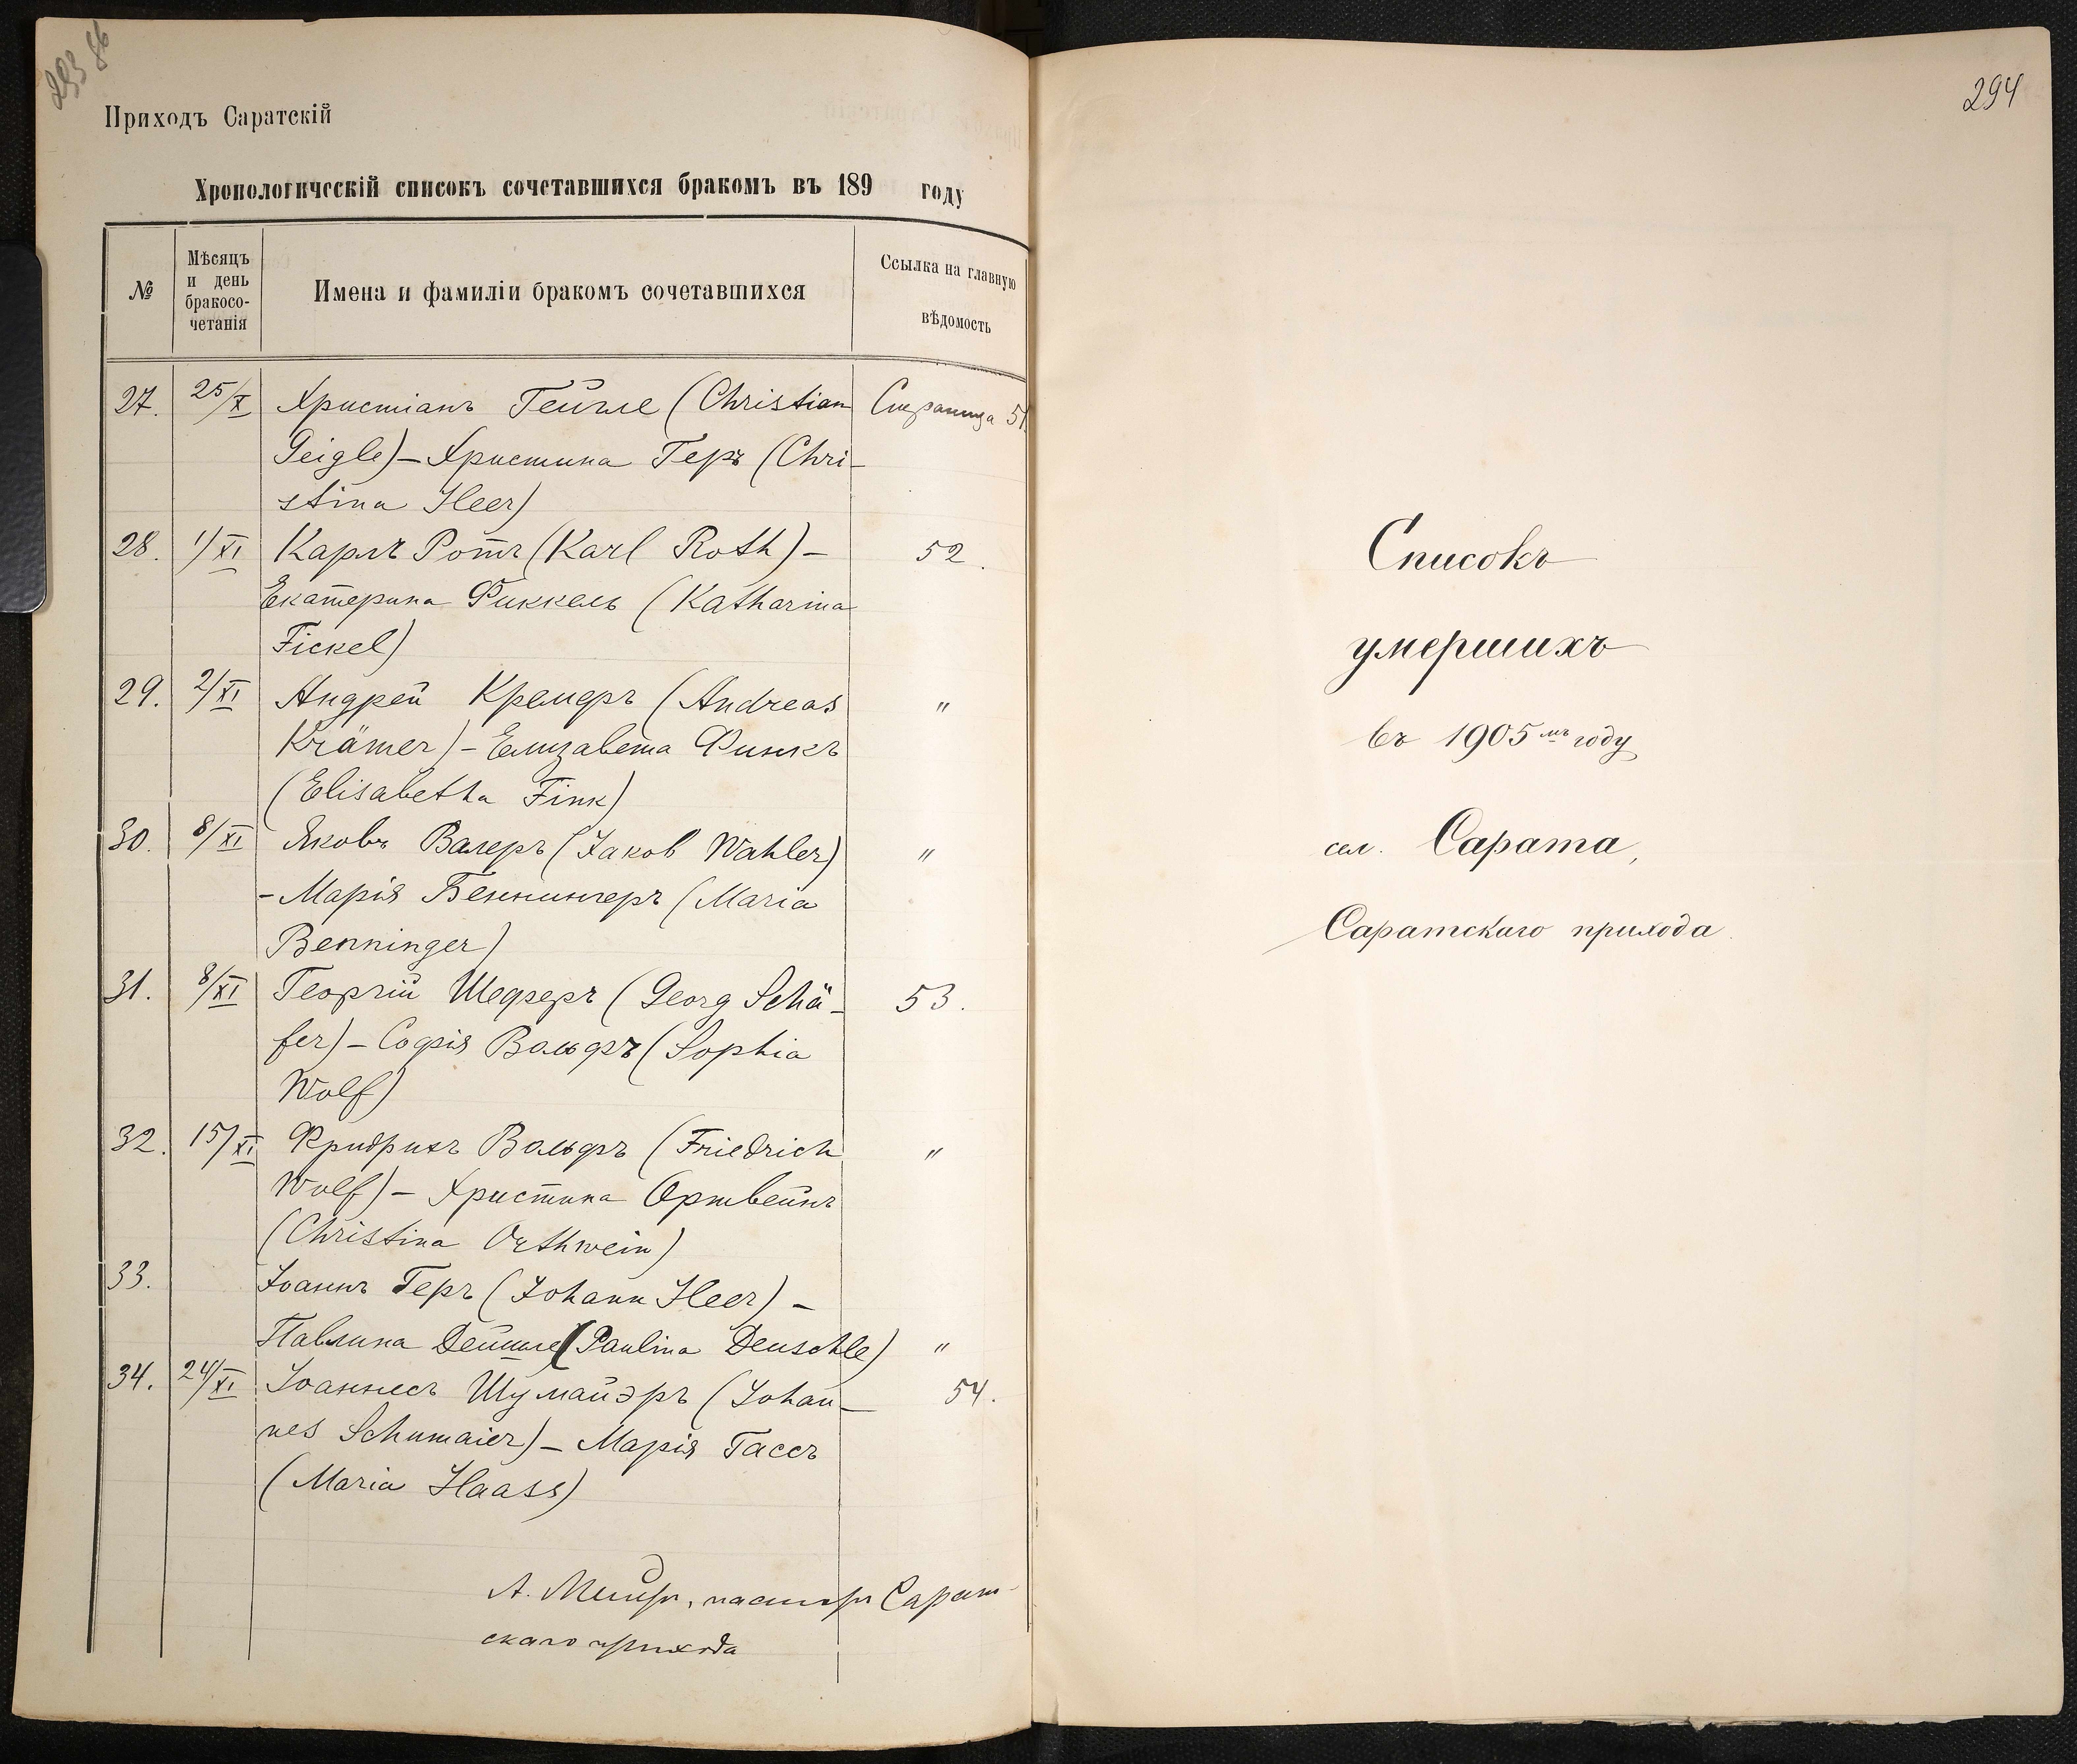 293 86
Приходъ Саратскій
Хронологическій списокъ сочетавшихся бракомъ въ 189 году
№
Мѣсяцъ
и день
бракосо-
четанія
Имена и фамиліи бракомъ сочетавшихся
Ссылка на главную
вѣдомость
27. 25/X Христіанъ Гейгле (Christian Страница 51.
Geigle) – Христина Геръ (Chri-
stina Heer)
28. 1/XI Карлъ Ротъ (Karl Roth) – 52.
Екатерина Фиккель (Katharina
Fickel)
29. 2/XI Андрей Кремеръ (Andreas "
Krämer) – Елизавета Финкъ
(Elisabetha Fink)
30. 8/XI Яковъ Валеръ (Jakob Wahler) "
– Марія Беннингеръ (Maria
Benninger)
31. 8/XI Георгій Шеферъ (Georg Schä- 53.
fer) – Софія Вольфъ (Sophia
Wolf)
32. 15/XI Фридрихъ Вольфъ (Friedrich "
Wolf) – Христина Ортвейнъ
(Christina Orthwein)
33. Іоаннъ Геръ (Johann Heer) –
Павлина Дейшле (Paulina Deuschle) "
34. 24/XI Іоаннесъ Шумайэръ (Johan- 54.
nes Schumaier) – Марія Гассъ
(Maria Haass)
А. Мейеръ, пасторъ Сарат-
скаго прихода
294
Списокъ
умершихъ
въ 1905мъ году
сел. Сарата,
Саратскаго прихода